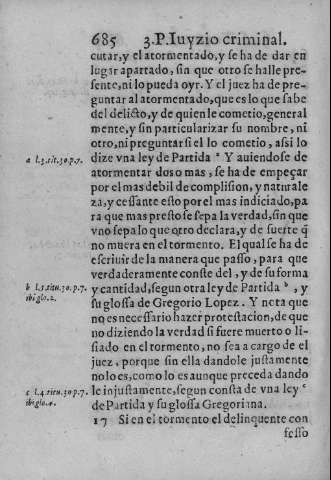 685 3.P.Iuyzio criminal.
cutar, y el atormentado, y se ha de dar en
lugar apartado, sin que otro se halle pre-
sente, ni lo pueda oyr. Y el juez ha de pre-
guntar al atormentado, que es lo que sabe
del delicto, y de quien le cometio, general
mente, y sin particularizar su nombre, ni
otro, ni preguntar si el lo cometio, assi lo
a l.3.tit.30.p.7.
dize vna ley de Partida a Y auiendose de
atormentar dos o mas, se ha de empeçar
por el mas debil de complision, y naturale
za, y cessante esto por el mas indiciado, pa
ra que mas presto se sepa la verdad, sin que
vno sepa lo que otro declara, y de suerte q̃
no muera en el tormento. El qual se ha de
escriuir de la manera que passo, para que
verdaderamente conste del, y de su forma
b l.5.titu.30.p.7.
ibi glo.2.
y cantidad, segun otra ley de Partida b, y
su glossa de Gregorio Lopez. Y nota que
no es necessario hazer protestacion, de que
no diziendo la verdad si fuere muerto o li-
siado en el tormento, no sea a cargo de el
juez, porque sin ella dandole justamente
no lo es, como lo es aunque preceda dando
c l.4.titu.30.p.7.
ibi glo.4.
le injustamente, segun consta de vna ley c
de Partida y su glossa Gregoriana.
17 Si en el tormento el delinquente con
fesso